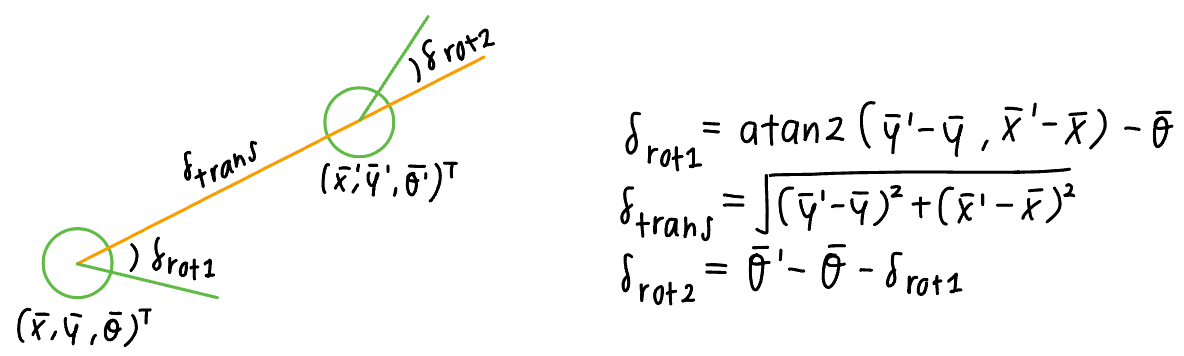 δrot2
δtrans
(x̄', ȳ', θ̄')ᵀ
δrot1
(x̄, ȳ, θ̄)ᵀ
δrot1 = atan2(ȳ'-ȳ, x̄'-x̄) - θ̄
δtrans = √(ȳ'-ȳ)²+(x̄'-x̄)²
δrot2 = θ̄' - θ̄ - δrot1